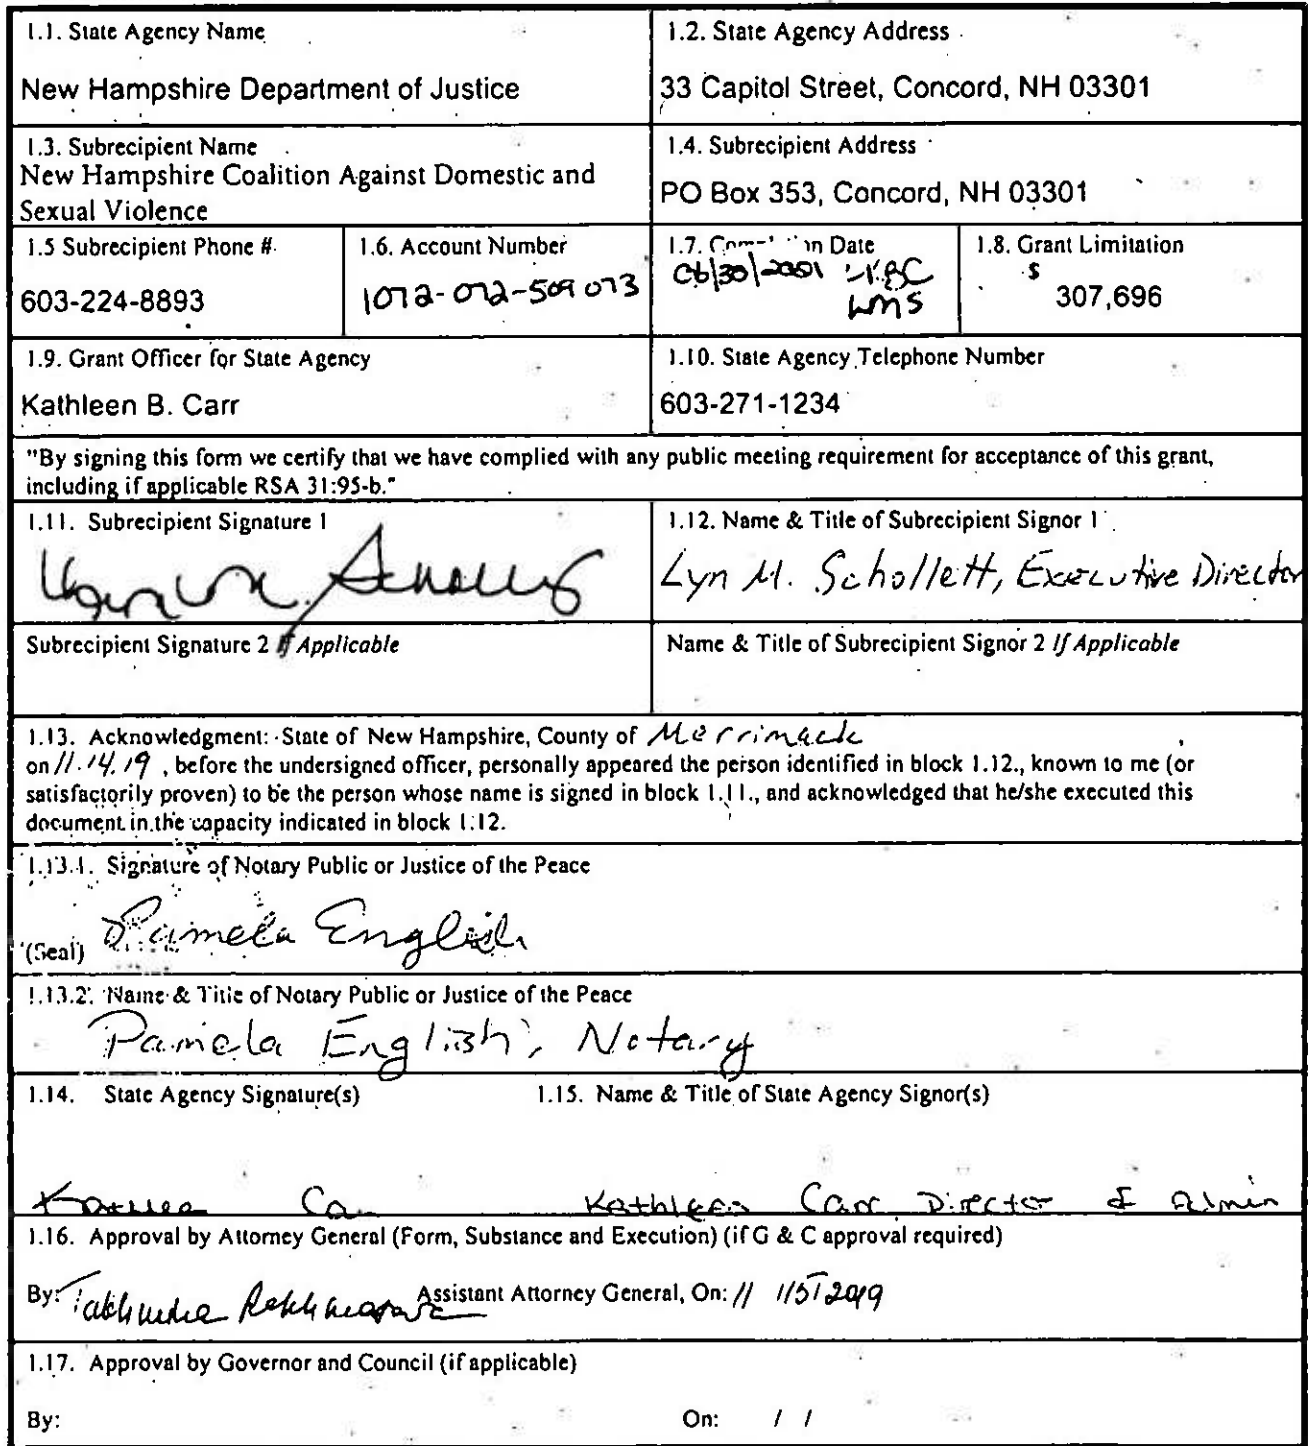 1.1. State Agency Name
New Hampshire Department of Justice
1.2. State Agency Address
33 Capitol Street, Concord, NH 03301
1.3. Subrecipient Name
New Hampshire Coalition Against Domestic and
Sexual Violence
1.4. Subrecipient Address
PO Box 353, Concord, NH 03301
1.5 Subrecipient Phone #
603-224-8893
1.6. Account Number
1072-072-509073
1.7. Date
06/30/
LMS
1.8. Grant Limitation
$
307,696
1.9. Grant Officer for State Agency
Kathleen B. Carr
1.10. State Agency Telephone Number
603-271-1234
"By signing this form we certify that we have complied with any public meeting requirement for acceptance of this grant,
including if applicable RSA 31:95-b."
1.11. Subrecipient Signature 1
1.12. Name & Title of Subrecipient Signor 1
Lyn M. Schollett, Executive Director
Subrecipient Signature 2 If Applicable
Name & Title of Subrecipient Signor 2 If Applicable
1.13. Acknowledgment: State of New Hampshire, County of Merrimack,
on 11.14.19, before the undersigned officer, personally appeared the person identified in block 1.12., known to me (or
satisfactorily proven) to be the person whose name is signed in block 1.11., and acknowledged that he/she executed this
document in the capacity indicated in block 1.12.
1.13.1. Signature of Notary Public or Justice of the Peace
(Seal) Pamela English
1.13.2. Name & Title of Notary Public or Justice of the Peace
Pamela English, Notary
1.14. State Agency Signature(s)
1.15. Name & Title of State Agency Signor(s)
Kathleen Carr Director of Admin
1.16. Approval by Attorney General (Form, Substance and Execution) (if G & C approval required)
By: Assistant Attorney General, On: 11/15/2019
1.17. Approval by Governor and Council (if applicable)
By: On: / /